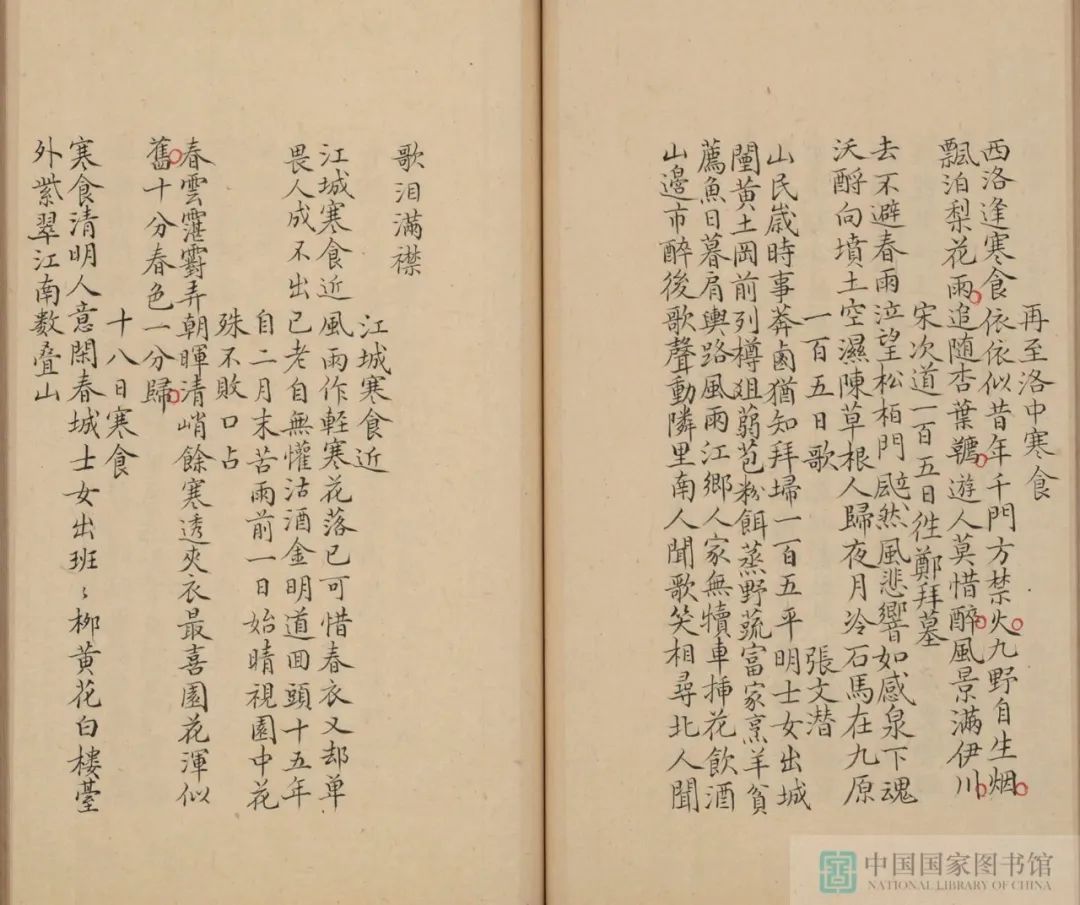 再至洛中寒食
西洛逢寒食依依似昔年千門方禁火九野自生烟
飄泊梨花雨追随杏葉韉遊人莫惜醉風景滿伊川
宋次道一百五日徃鄭拜墓
去不避春雨泣望松柏門颷然風悲響如感泉下魂
沃酹向墳土空濕陳草根人歸夜月冷石馬在九原
一百五日歌 張文潜
山民歲時事莽鹵猶知拜埽一百五平明士女出城
闉黄土岡前列樽俎蒻苞粉餌蒸野蔬富家烹羊貧
薦魚日暮肩輿路風雨江鄉人家無犢車揷花飲酒
山邊市醉後歌聲動隣里南人聞歌笑相尋北人聞
歌泪滿襟
江城寒食近
江城寒食近風雨作輕寒花落已可惜春衣又却单
畏人成不出已老自無懽沽酒金明道囬頭十五年
自二月末苦雨前一日始晴視園中花
殊不敗口占
春雲霮䨴弄朝暉清峭餘寒透夾衣最喜園花渾似
舊十分春色一分歸
十八日寒食
寒食清明人意閑春城士女出班〻柳黄花白樓臺
外紫翠江南数叠山
中国国家图书馆
NATIONAL LIBRARY OF CHINA